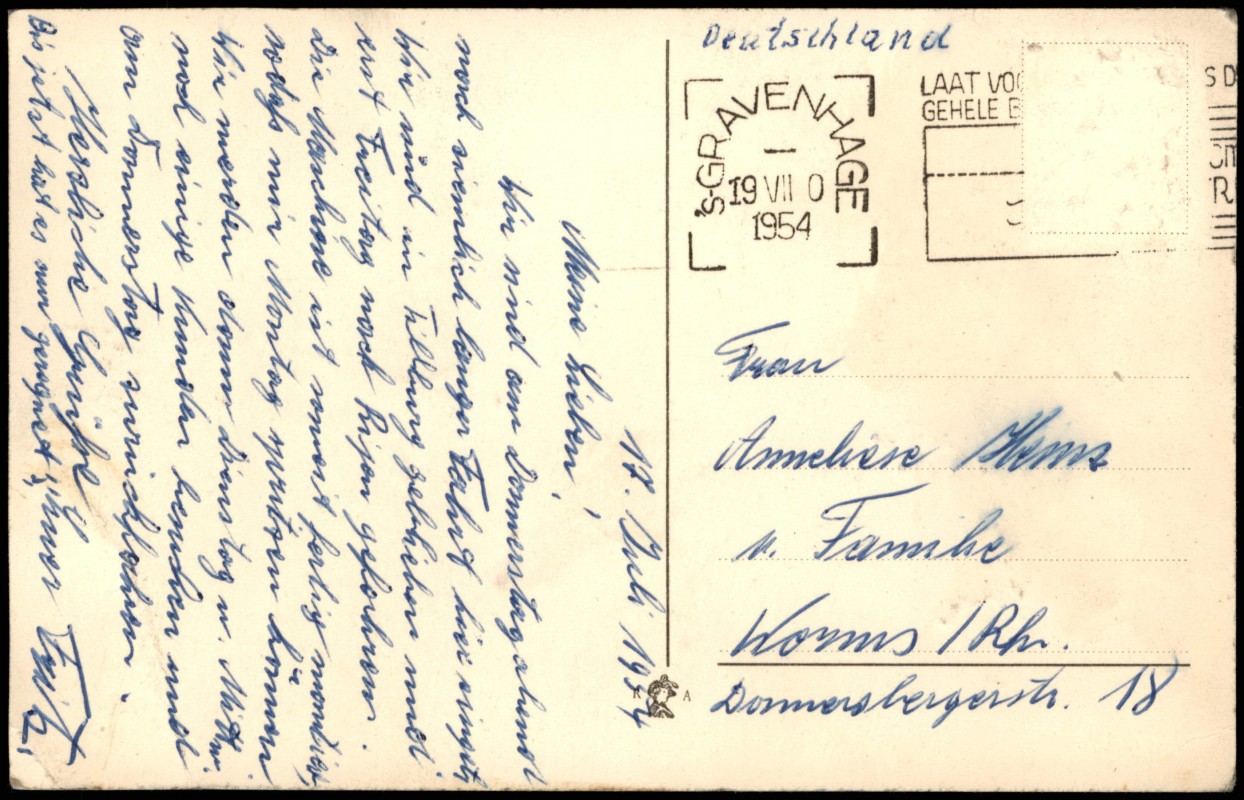 17. Juli 1954
Meine Lieben,
Wir sind am Donnerstag abend
nach ziemlich langer Fahrt hier
Wir sind in Tilburg geblieben und
erst Freitag nach Rijen gefahren.
Die Maschine ist soweit fertig
sodaß wir Montag können
Wir werden dann Dienstag u. Mittw.
noch einige Kunden besuchen und
am Donnerstag zurückfahren.
Herzliche Grüße
Euer Fritz,
Bis jetzt hat es nur geregnet,
Deutschland
'S-GRAVENHAGE
19 VII 0
1954
LAAT VO
GEHELE B
S D
R
Frau
Anneliese Heins
u. Familie
Worms / Rh.
Donnersbergerstr. 18
K A